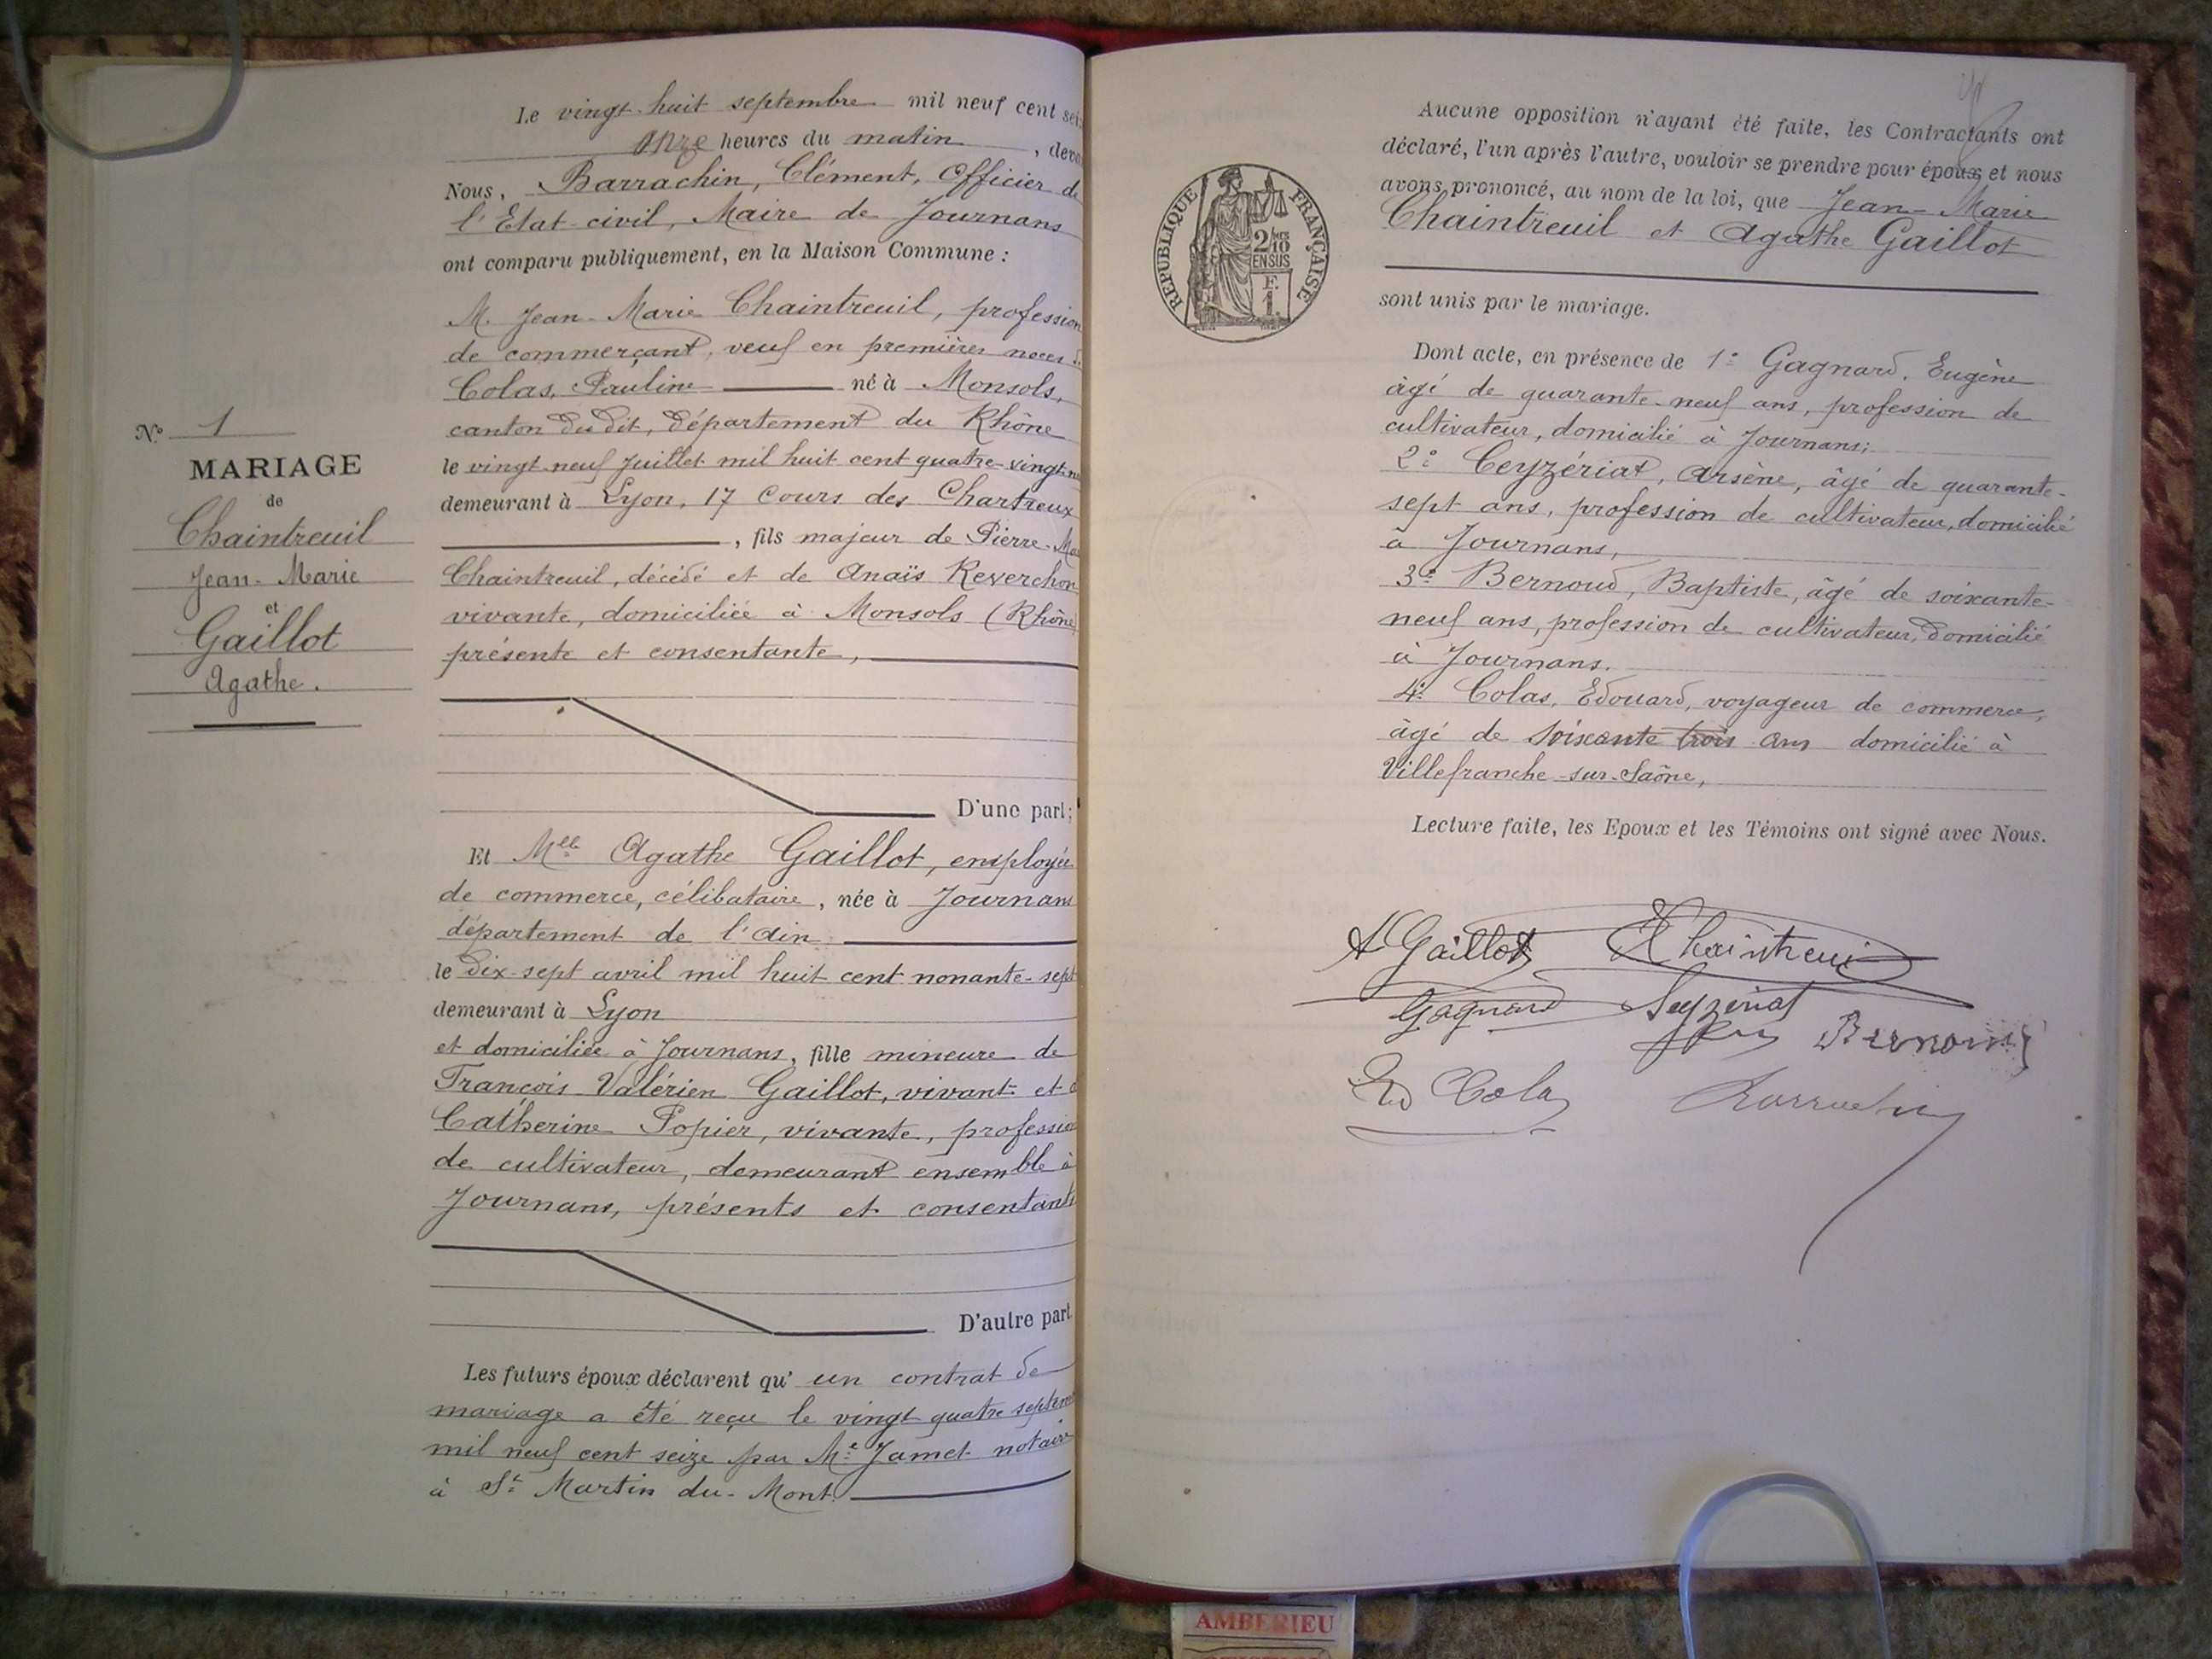 Le vingt-huit septembre mil neuf cent sei
onze heures du matin, deva
Nous, Barrachin, Clément, Officier de
l'Etat-civil, Maire de Journans
ont comparu publiquement, en la Maison Commune :
M. Jean-Marie Chaintreuil, profession
de commerçant, veuf en premières noces d
Colas, Pauline né à Monsols,
canton du dit, département du Rhône
le vingt-neuf Juillet mil huit cent quatre-vingt-n
demeurant à Lyon, 17 Cours des Chartreux
, fils majeur de Pierre-Ma
Chaintreuil, décédé et de Anaïs Reverchon
vivante, domiciliée à Monsols (Rhône)
présente et consentante,
D'une part;
N° 1
MARIAGE
de
Chaintreuil
Jean-Marie
et
Gaillot
Agathe.
Et Mlle Agathe Gaillot, employée
de commerce, célibataire, née à Journans
département de l'Ain
le dix-sept avril mil huit cent nonante-sept
demeurant à Lyon
et domiciliée à Journans, fille mineure de
François Valérien Gaillot, vivant et d
Catherine Popier, vivante, professio
de cultivateur, demeurant ensemble à
Journans, présents et consentants
D'autre part.
Les futurs époux déclarent qu' un contrat de
mariage a été reçu le vingt quatre septem
mil neuf cent seize par Me Jamet notaire
à St Martin du-Mont.
REPUBLIQUE FRANÇAISE
2/10
EN SUS
F.
1.
Aucune opposition n'ayant été faite, les Contractants ont
déclaré, l'un après l'autre, vouloir se prendre pour époux et nous
avons prononcé, au nom de la loi, que Jean-Marie
Chaintreuil et Agathe Gaillot
sont unis par le mariage.
Dont acte, en présence de 1° Gagnard, Eugène
âgé de quarante-neuf ans, profession de
cultivateur, domicilié à Journans;
2° Ceyzériat, Arsène, âgé de quarante-
sept ans, profession de cultivateur, domicilié
à Journans,
3° Bernoud, Baptiste, âgé de soixante-
neuf ans, profession de cultivateur, domicilié
à Journans.
4° Colas, Edouard, voyageur de commerce,
âgé de soixante trois ans domicilié à
Villefranche-sur-Saône,
Lecture faite, les Epoux et les Témoins ont signé avec Nous.
A Gaillot Chaintreuil
Gagnard Ceyzériat
Bernoud
Ed Colas Barrachin
AMBERIEU